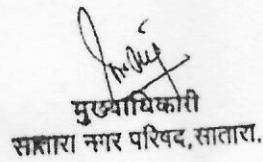 मुख्याधिकारी
सातारा नगर परिषद, सातारा.